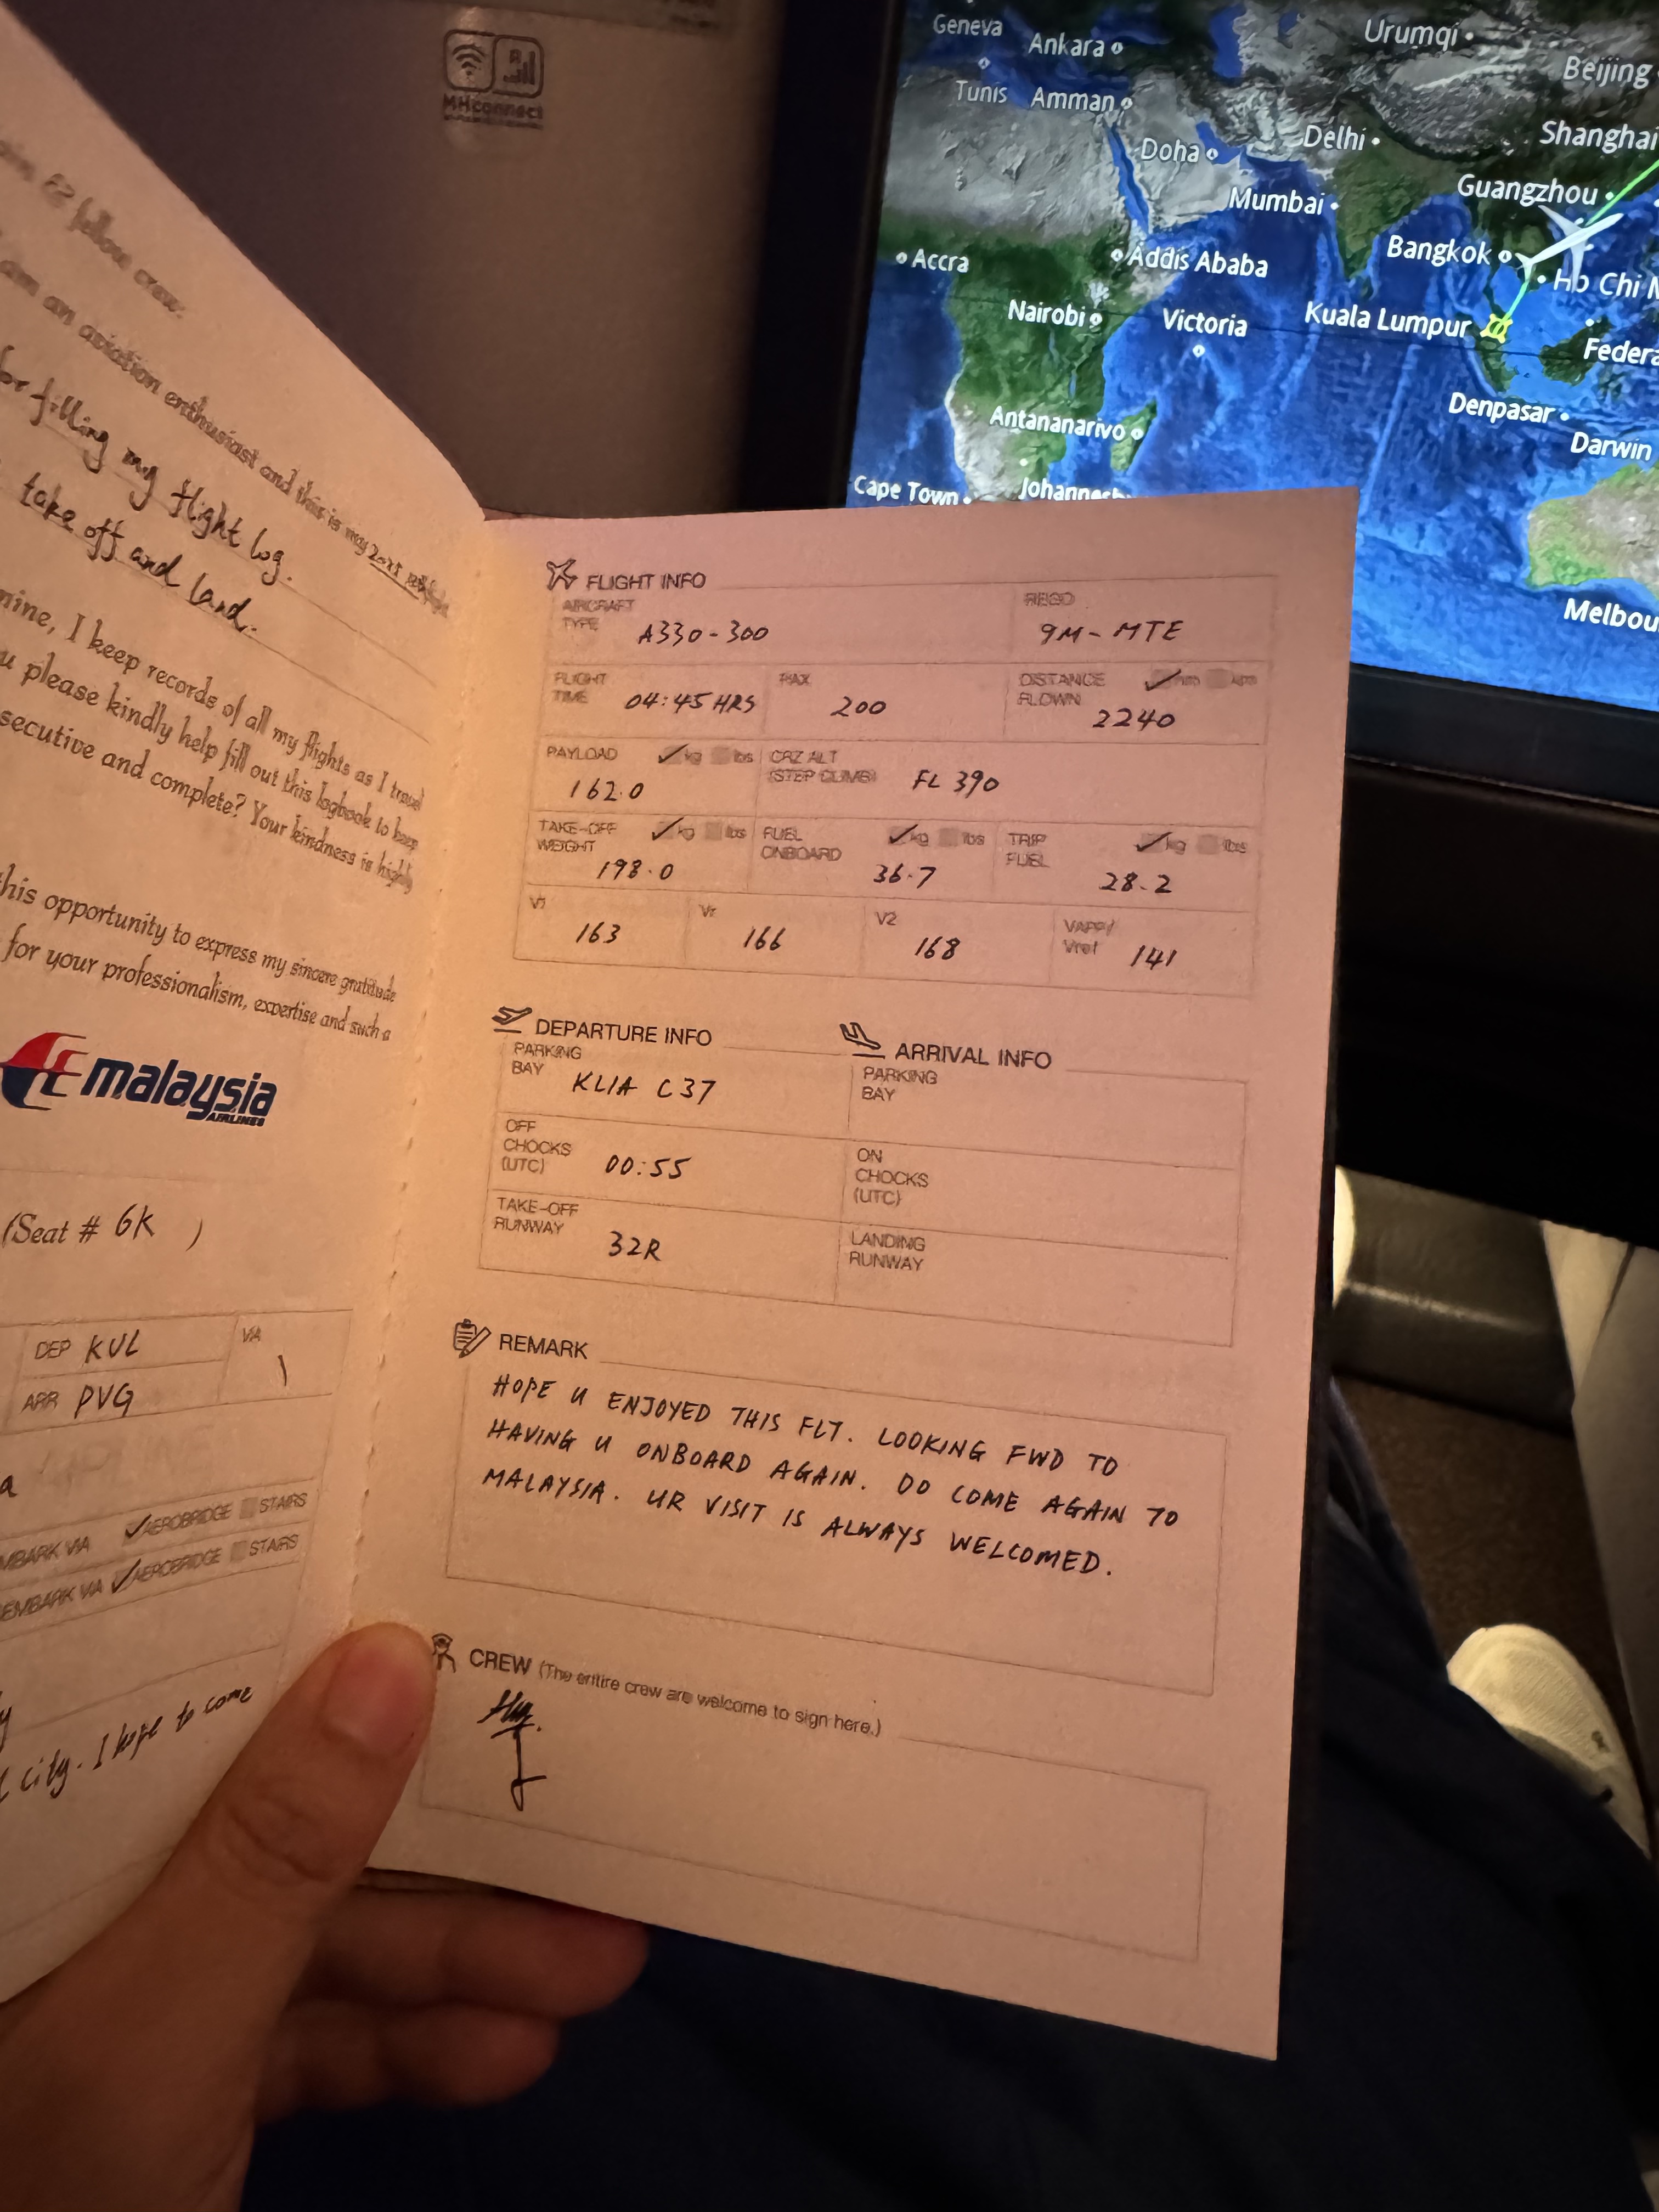 MHconnect
Geneva
Ankara
Urumqi
Beijing
Tunis
Amman
Shanghai
Doha
Delhi
Guangzhou
Mumbai
Bangkok
Accra
Addis Ababa
Ho Chi
Nairobi
Victoria
Kuala Lumpur
Denpasar
Antananarivo
Darwin
Cape Town
Melbou
62 fellow crew.
am an aviation enthusiast and this is my
for filling my flight log.
take off and land.
mine, I keep records of all my flights as I travel
please kindly help fill out this logbook to keep
secutive and complete? Your kindness is highly
this opportunity to express my sincere gratitude
for your professionalism, expertise and such a
malaysia
AIRLINES
(Seat # 6K )
DEP KUL
VIA \
ARR PVG
MBARK VIA ✓AEROBRIDGE STAIRS
EMBARK VIA ✓AEROBRIDGE STAIRS
city. I hope to come
FLIGHT INFO
AIRCRAFT TYPE A330-300
REGO 9M-MTE
FLIGHT TIME 04:45 HRS
PAX 200
DISTANCE FLOWN ✓nm km 2240
PAYLOAD ✓kg lbs 162.0
CRZ ALT (STEP CLIMB) FL 390
TAKE-OFF WEIGHT ✓kg lbs 198.0
FUEL ONBOARD ✓kg lbs 36.7
TRIP FUEL ✓kg lbs 28.2
V1 163
Vr 166
V2 168
VAPP/Vref 141
DEPARTURE INFO
PARKING BAY KLIA C37
OFF CHOCKS (UTC) 00:55
TAKE-OFF RUNWAY 32R
ARRIVAL INFO
PARKING BAY
ON CHOCKS (UTC)
LANDING RUNWAY
REMARK
HOPE U ENJOYED THIS FLT. LOOKING FWD TO
HAVING U ONBOARD AGAIN. DO COME AGAIN TO
MALAYSIA. UR VISIT IS ALWAYS WELCOMED.
CREW (The entire crew are welcome to sign here.)